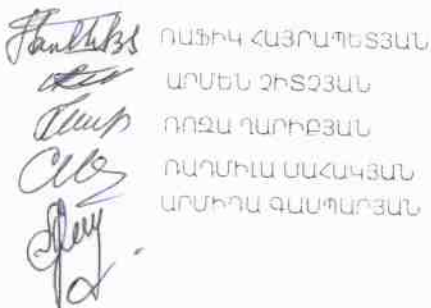 ՌԱՖԻԿ ՀԱՅՐԱՊԵՏՅԱՆ
ԱՐՄԵՆ ՉԻՏՉՅԱՆ
ՌՈԶԱ ՂԱՐԻԲՅԱՆ
ՌԱԴՄԻԼԱ ՍԱՀԱԿՅԱՆ
ԱՐՄԻԴԱ ԳԱՍՊԱՐՅԱՆ